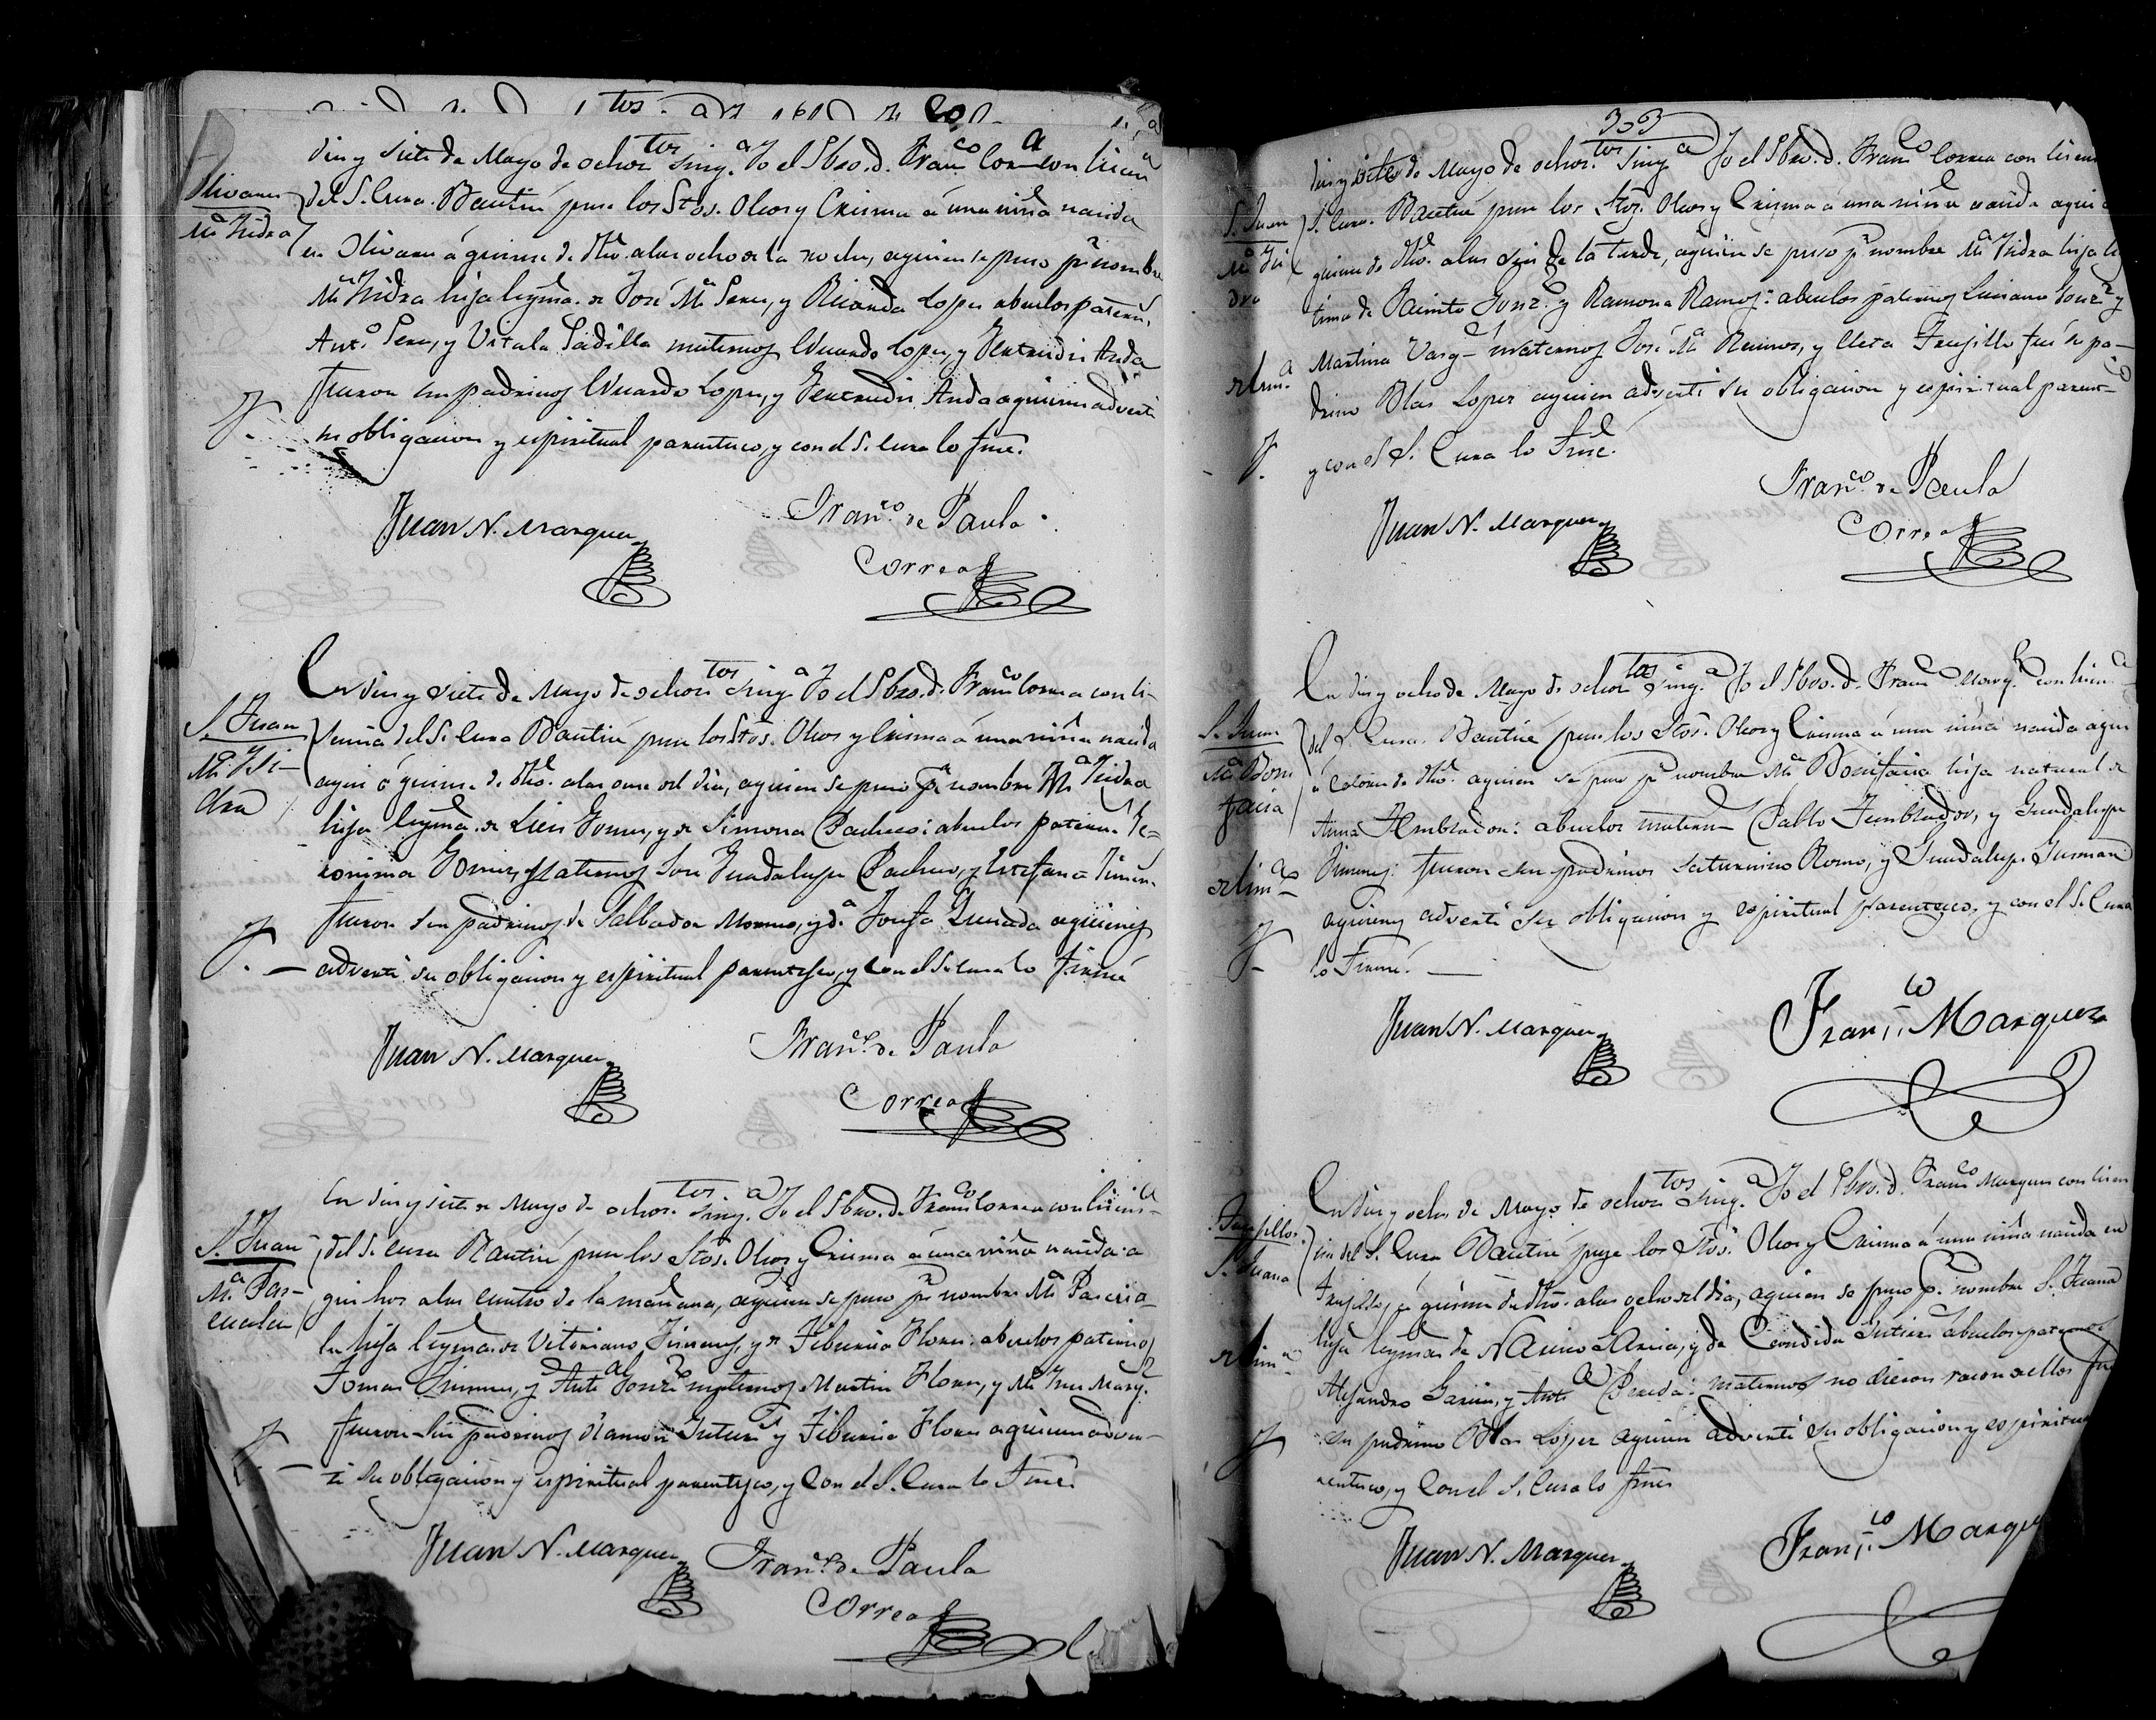 dies y siete de Mayo de ochos.tos sinq.a Yo el Pbro. d. Fran.co Correa con licen.a
Olivares
del S. Cura. Bautisé puse los Stos. Oleos y Crisma á una niña nasida
M.a Ysidra
en Olivares á quinse de dho. a las ocho de la noche, a quien se puso p.r nombre
M.a Ysidra hija legma. de José M.a Peres, y Ricarda Lopes abuelos patern.s
Ant.o Peres, y Vitala Padilla maternos Eduardo Lopes, y Gertrudis Anda
fueron sus padrinos Eduardo Lopes, y Gertrudis Anda a quienes adverti
su obligacion y espiritual parentesco, y con el S. Cura lo firmé.
Juan N. Marquez
Fran.co de Paula
Correa
En dies y siete de Mayo de ochos.tos sinq.a Yo el Pbro. d. Fran.co Correa con li-
S. Juan
sensia del S. Cura Bautisé puse los Stos. Oleos y Crisma á una niña nasida
M.a Ysi-
dra
aqui á quinse de dho. a las onse del dia, a quien se puso p.r nombre M.a Ysidra
hija legma. de Gomes, y de Simona Pacheco: abuelos patern.s Ge-
ronima Gomes, Maternos José Guadalupe Pacheco, y Estefana Ximen.
fueron sus padrinos d. Salbador Moreno, y d.a Josefa Quesada a quienes
adverti su obligacion y espiritual parentesco, y con el S. Cura lo firmé
Juan N. Marquez
Fran.co de Paula
Correa
En dies y siete de Mayo de ochos.tos sinq.a Yo el Pbro. d. Fran.co Correa con licens.a
S. Juan
del S. Cura Bautisé puse los Stos. Oleos y Crisma á una niña nasida a-
M.a Pas-
cuala
qui hoy a las cuatro de la mañana, a quien se puso p.r nombre M.a Pascua-
la hija legma. de Vitoriano Ximenes, y de Tiburcia Flores: abuelos paternos
Tomas Ximenes, y Ant.a Gonz.z maternos Martin Flores, y M.a Ines Marq.z
fueron sus padrinos Ramon Gutier.z y Tiburcia Flores a quienes adver-
ti su obligacion y espiritual parentesco, y con el S. Cura lo firmé.
Juan N. Marquez
Fran.co de Paula
Correa
303
dies y siete de Mayo de ochos.tos sinq.a Yo el Pbro. d. Fran.co Correa con licen
S. Juan
S. Cura. Bautisé puse los Stos. Oleos y Crisma á una niña nasida aqui
M.a Ysi
dra
quinse de dho. a las seis de la tarde, a quien se puso p.r nombre M.a Ysidra hija le
tima de Gonz.z y Ramona Ramos: abuelos paternos Luciano Gonz.z y
Martina Varg.s Maternos José M.a Ramos, y Cleta Trujillo fué su pa-
drino Blas Lopes a quien adverti su obligacion y espiritual parent.co
y con el S. Cura lo firmé.
Juan N. Marquez
Fran.co de Paula
Correa
En dies y ocho de Mayo de ochos.tos sinq.a Yo el Pbro. d. Fran.co Marq.z con licen.a
S. Juan
del S. Cura. Bautisé puse los Stos. Oleos y Crisma á una niña nasida aqui
M.a Boni
facia
á catorse de dho. a quien se puso p.r nombre M.a Bonifacia hija natural de
Anna Semblador: abuelos matern.s Pablo Semblador, y Guadalupe
Ximenes: fueron sus padrinos Saturnino Romo, y Guadalupe Gusman
a quienes adverti su obligacion y espiritual parentesco, y con el S. Cura
lo firmé.
Juan N. Marquez
Fran.co Marquez
En dies y ocho de Mayo de ochos.tos sinq.a Yo el Pbro. d. Fran.co Marques con licen
Trujillos.
cia del S. Cura Bautisé puse los Stos. Oleos y Crisma á una niña nasida en
S. Juana
Trujillos, á quinse de dho. a las ocho del dia, a quien se puso p.r nombre S. Juana
hija legma. de Garcia, y de Candida Gutier.z abuelos paternos
Alejandro Garcia, y Ant.a Pereda: maternos no dieron rason de ellos fue
su padrino Blas Lopez a quien adverti su obligacion y espiritu
rentesco, y con el S. Cura lo firmé
Juan N. Marquez
Fran.co Marque